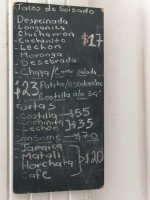 Tacos de Guisado
- Despeinada
- Longaniza
- Chicharron
- Cochinita
- Lechon
- Moronga
- Desebrada
$17
- Chaya / Carne Salada
$23
Costilla
Tortas
- Costilla - $55
- Cochinita
- Lechon
$35
- Consome - $70
- Jamaica
- Matali
- Horchata
- Cafe
$20